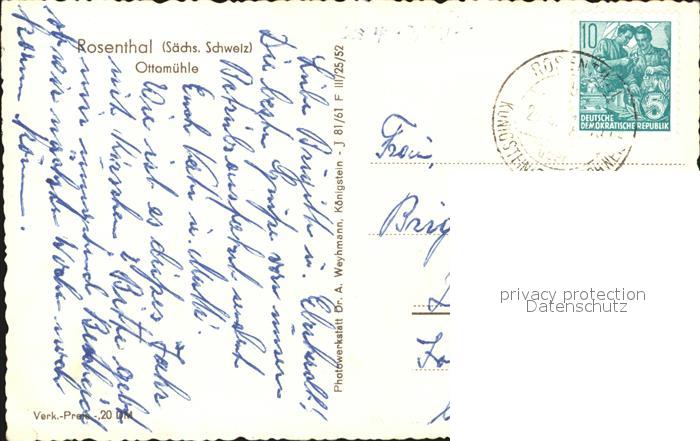 Rosenthal (Sächs. Schweiz)
Ottomühle
Liebe Brigitte u. Eberhard!
Die besten Grüße von unserer
Betriebsausfahrt sendet
Euch Vati u. Mutti.
Wie ist es dieses Jahr
mit Kirschen? Bitte gebt
mir umgehend Bescheid
ob wir nächste Woche noch
Verk.-Preis -,20 DM
Photowerkstatt Dr. A. Weyhmann, Königstein - J 81/61 F III/25/52
10
5
DEUTSCHE
DEMOKRATISCHE REPUBLIK
Frau
Brig
privacy protection
Datenschutz